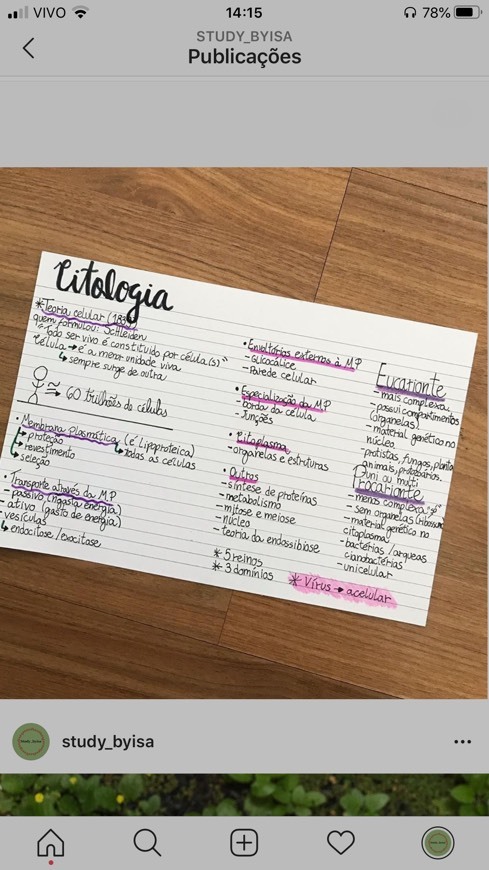 VIVO
14:15
78%
STUDY_BYISA
Publicações
Citologia
*Teoria celular (183
quem formulou: Schleiden
"Todo ser vivo é constituído por célula(s)"
célula → é a menor unidade viva
↳ sempre surge de outra
≅ 60 trilhões de células
• Membrana plasmática (é lipoproteica)
↳ proteção
↳ revestimento
↳ seleção
↳ todas as células
• Transporte através da M.P
- passivo (ñ gasta energia)
- ativo (gasto de energia)
- vesículas
↳ endocitose/exocitose
• Envoltórios externos à M.P
- Glicocálice
- Parede celular
• Especialização da M.P
- borda da célula
- junções
• Citoplasma
- organelas e estruturas
• Outros
- síntese de proteínas
- metabolismo
- mitose e meiose
- núcleo
- teoria da endossibiose
* 5 reinos
* 3 domínios
* Vírus → acelular
Eucarionte
- mais complexa
- possui compartimentos
(organelas)
- material genético no
núcleo
- protistas, fungos, planta
animais, protozoários.
- uni ou multi
Procarionte
- menos complexa
- sem organelas (ribosso
- material genético no
citoplasma
- bactérias/arqueas
cianobactérias
- unicelular
study_byisa